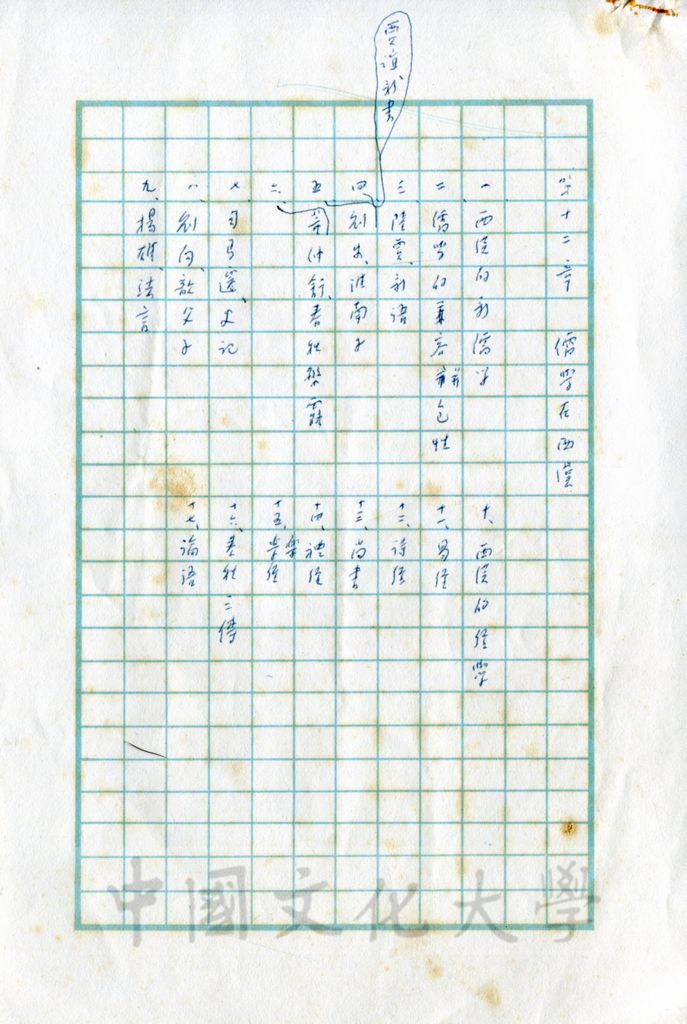 第十二章　儒學在西漢
一、西漢的新儒學
二、儒學的兼容並包性
三、陸賈、新語
賈誼新書
四、劉安、淮南子
五、
六、董仲舒、春秋繁露
七、司馬遷、史記
八、劉向、歆父子
九、揚雄、法言
十、西漢的經學
十一、易經
十二、詩經
十三、尚書
十四、禮經
十五、樂經
十六、春秋三傳
十七、論語
中國文化大學